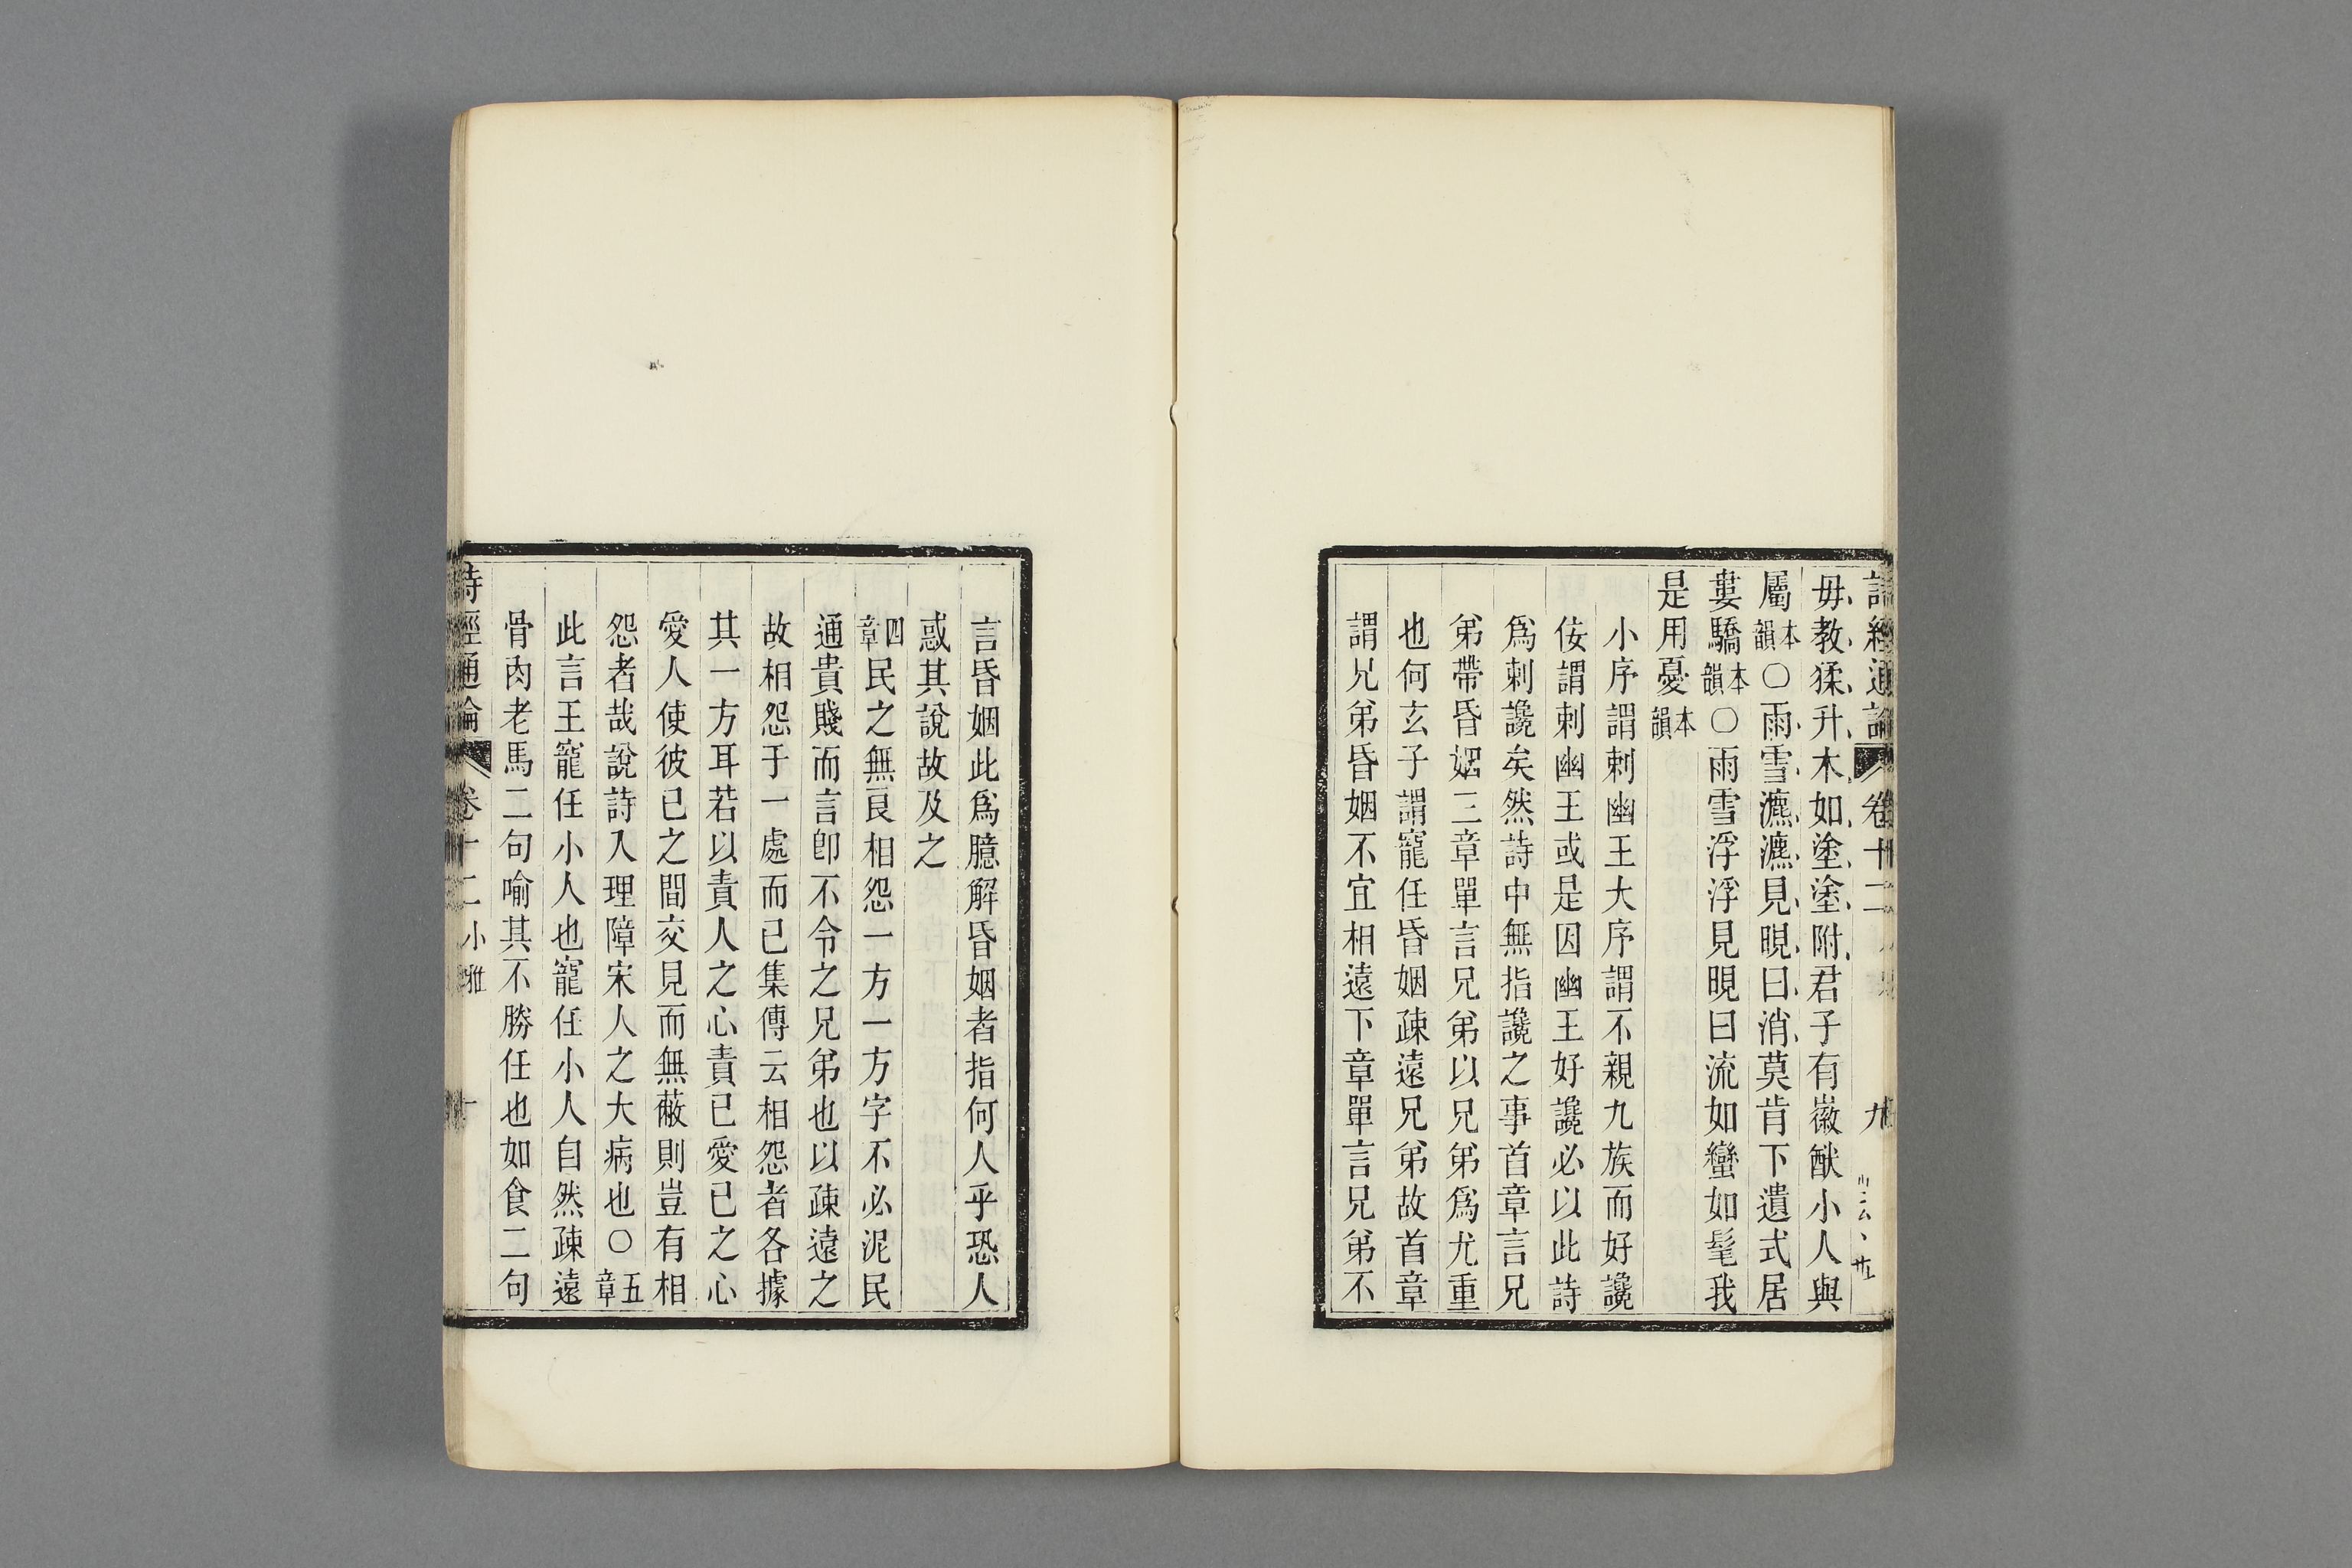 詩經通論 卷十二 九
毋教猱升木如塗塗附君子有徽猷小人與
屬本韻〇雨雪瀌瀌見晛曰消莫肯下遺式居
婁驕本韻〇雨雪浮浮見晛曰流如蠻如髦我
是用憂本韻
小序謂刺幽王大序謂不親九族而好讒
佞謂刺幽王或是因幽王好讒必以此詩
爲刺讒矣然詩中無指讒之事首章言兄
弟帶昏姻三章單言兄弟以兄弟爲尤重
也何玄子謂寵任昏姻疎遠兄弟故首章
謂兄弟昏姻不宜相遠下章單言兄弟不
言昏姻此爲臆解昏姻者指何人乎恐人
惑其說故及之
四章民之無良相怨一方一方字不必泥民
通貴賤而言卽不令之兄弟也以疎遠之
故相怨于一處而已集傳云相怨者各據
其一方耳若以責人之心責已愛已之心
愛人使彼已之間交見而無蔽則豈有相
怨者哉說詩入理障宋人之大病也〇五章
此言王寵任小人也寵任小人自然疎遠
骨肉老馬二句喻其不勝任也如食二句
詩經通論 卷十二 小雅 十